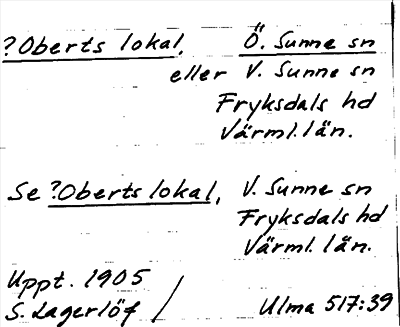 ?Oberts lokal, Ö. Sunne sn
eller V. Sunne sn
Fryksdals hd
Värml. län.
Se ?Oberts lokal, V. Sunne sn
Fryksdals hd
Värml. län.
Uppt. 1905
S. Lagerlöf / Ulma 517:39